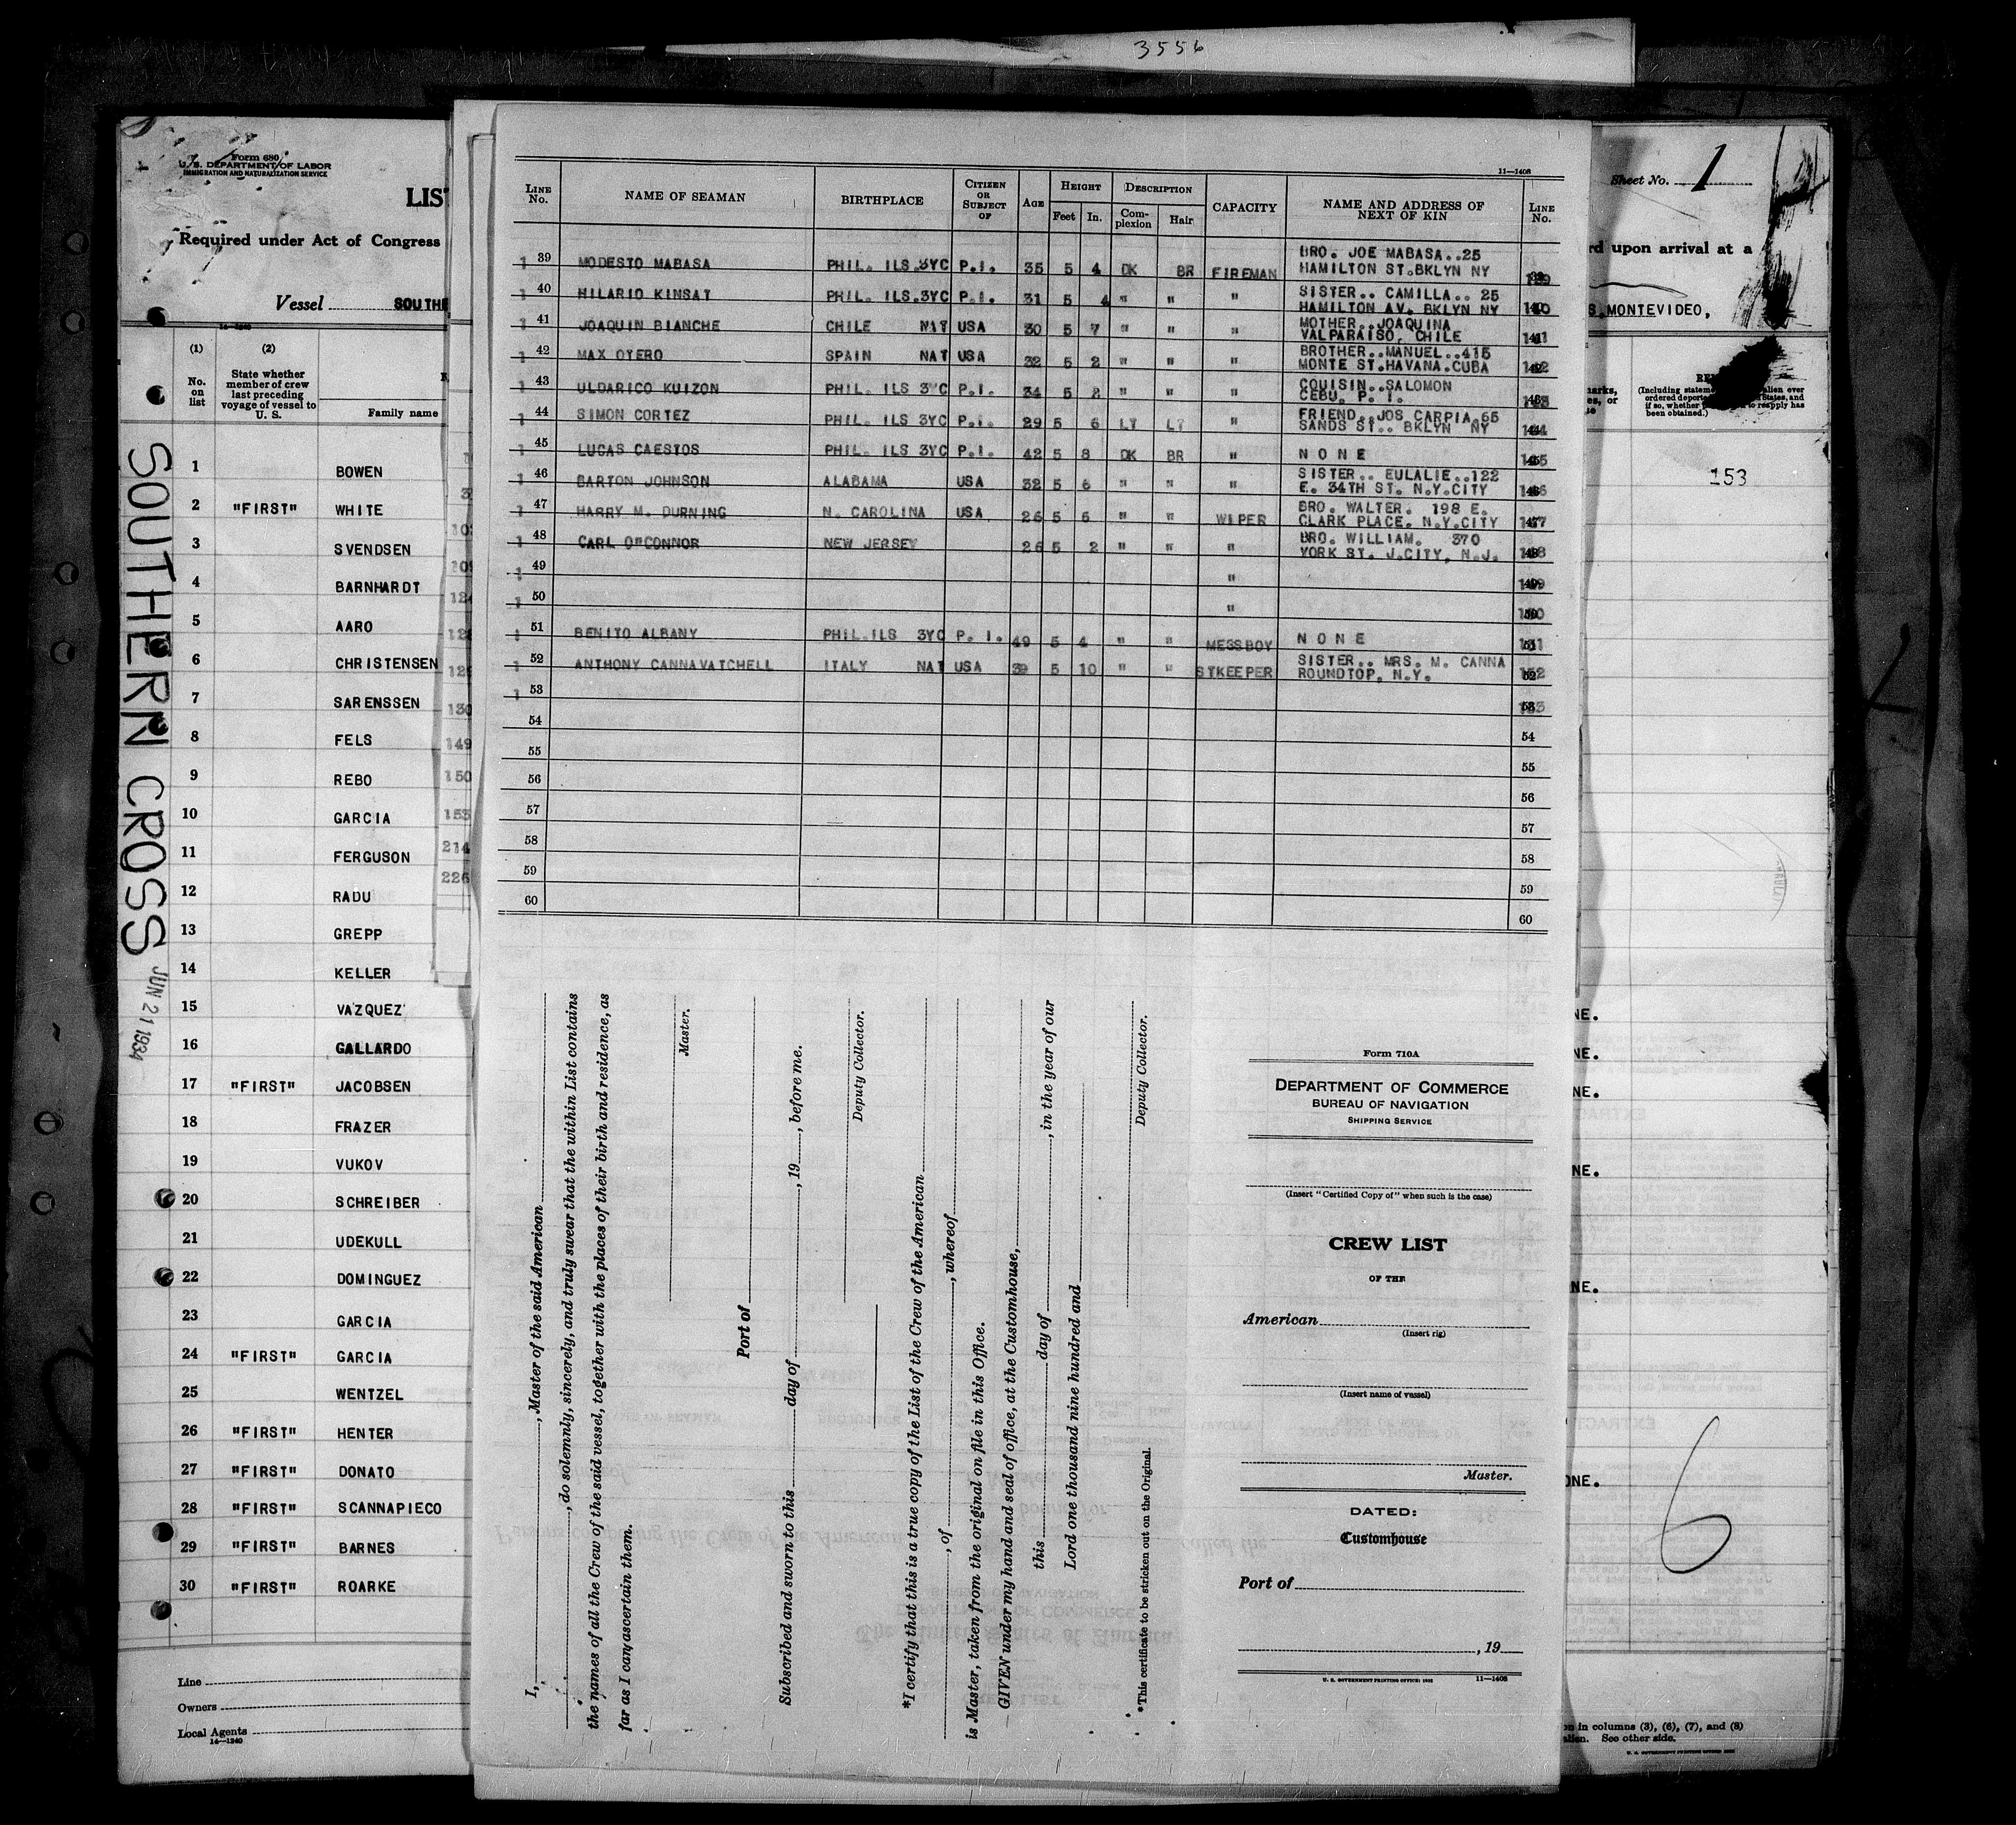 3556
Form 680
U. S. DEPARTMENT OF LABOR
IMMIGRATION AND NATURALIZATION SERVICE
LIS
Required under Act of Congress
Vessel SOUTHE
14—1240
(1) (2)
No. on list
State whether member of crew last preceding voyage of vessel to U. S.
Family name
1 BOWEN
2 "FIRST" WHITE
3 SVENDSEN
4 BARNHARDT
5 AARO
6 CHRISTENSEN
7 SARENSSEN
8 FELS
9 REBO
10 GARCIA
11 FERGUSON
12 RADU
13 GREPP
14 KELLER
15 VAZQUEZ
16 GALLARDO
17 "FIRST" JACOBSEN
18 FRAZER
19 VUKOV
20 SCHREIBER
21 UDEKULL
22 DOMINGUEZ
23 GARCIA
24 "FIRST" GARCIA
25 WENTZEL
26 "FIRST" HENTER
27 "FIRST" DONATO
28 "FIRST" SCANNAPIECO
29 "FIRST" BARNES
30 "FIRST" ROARKE
Line
Owners
Local Agents
14—1240
SOUTHERN CROSS
JUN 21 1934
149
150
153
214
226
11—1408
LINE No. NAME OF SEAMAN BIRTHPLACE CITIZEN OR SUBJECT OF AGE HEIGHT Feet In. DESCRIPTION Complexion Hair CAPACITY NAME AND ADDRESS OF NEXT OF KIN LINE No.
1 39 MODESTO MABASA PHIL. ILS.3YC P.I. 35 5 4 DK BR FIREMAN BRO. JOE MABASA..25
HAMILTON ST.BKLYN NY 139
1 40 HILARIO KINSAT PHIL. ILS.3YC P.I. 31 5 4 " " " SISTER.. CAMILLA.. 25
HAMILTON AV. BKLYN NY 140
1 41 JOAQUIN BIANCHE CHILE NAT USA 30 5 7 " " " MOTHER..JOAQUINA
VALPARAISO, CHILE 141
1 42 MAX OTERO SPAIN NAT USA 32 5 2 " " " BROTHER..MANUEL..415
MONTE ST.HAVANA.CUBA 142
1 43 ULDARICO KUIZON PHIL. ILS 3YC P.I. 34 5 2 " " " COUISIN..SALOMON
CEBU, P. I. 143
1 44 SIMON CORTEZ PHIL. ILS 3YC P.I. 29 5 6 LT LT " FRIEND..JOS CARPIA.65
SANDS ST.. BKLYN NY 144
1 45 LUCAS CAESTOS PHIL. ILS 3YC P.I. 42 5 8 DK BR " N O N E 145
1 46 BARTON JOHNSON ALABAMA USA 32 5 6 " " " SISTER.. EULALIE..122
E. 34TH ST. N.Y.CITY 146
1 47 HARRY M. DURNING N. CAROLINA USA 26 5 6 " " WIPER BRO. WALTER. 198 E.
CLARK PLACE. N.Y.CITY 147
1 48 CARL O"CONNOR NEW JERSEY 26 5 2 " " " BRO. WILLIAM. 370
YORK ST. J.CITY, N.J. 148
1 49 " 149
1 50 " 150
1 51 BENITO ALBANY PHIL.ILS 3YC P. I. 49 5 4 " " MESSBOY N O N E 151
1 52 ANTHONY CANNAVATCHELL ITALY NAT USA 39 5 10 " " STKEEPER SISTER.. MRS. M. CANNA
ROUNDTOP, N.Y. 152
1 53 153
54 54
55 55
56 56
57 57
58 58
59 59
60 60
I, , Master of the said American
, do solemnly, sincerely, and truly swear that the within List contains
the names of all the Crew of the said vessel, together with the places of their birth and residence, as
far as I can ascertain them.
Master.
Port of
Subscribed and sworn to this day of , 19 , before me.
Deputy Collector.
*I certify that this is a true copy of the List of the Crew of the American
, of , whereof
is Master, taken from the original on file in this Office.
GIVEN under my hand and seal of office, at the Customhouse,
this day of , in the year of our
Lord one thousand nine hundred and
Deputy Collector.
*This certificate to be stricken out on the Original.
Form 710A
DEPARTMENT OF COMMERCE
BUREAU OF NAVIGATION
SHIPPING SERVICE
(Insert "Certified Copy of" when such is the case)
CREW LIST
OF THE
American
(Insert rig)
(Insert name of vessel)
Master.
DATED:
Customhouse
Port of
, 19
U. S. GOVERNMENT PRINTING OFFICE: 1932 11—1408
Sheet No. 1
rd upon arrival at a
S, MONTEVIDEO,
153
NE.
NE.
NE.
NE.
NE.
ONE.
6
on in columns (3), (6), (7), and (8)
alien. See other side.